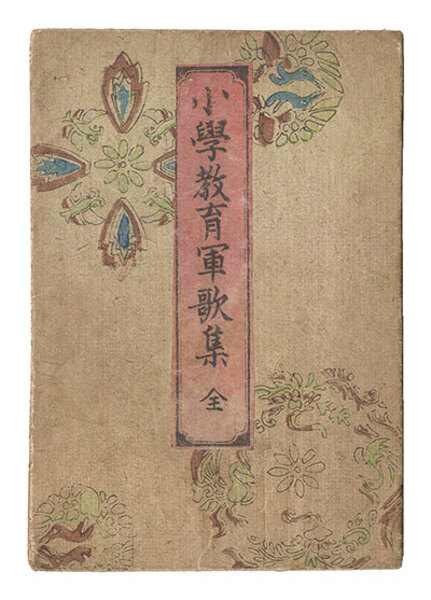 小學教育軍歌集 全